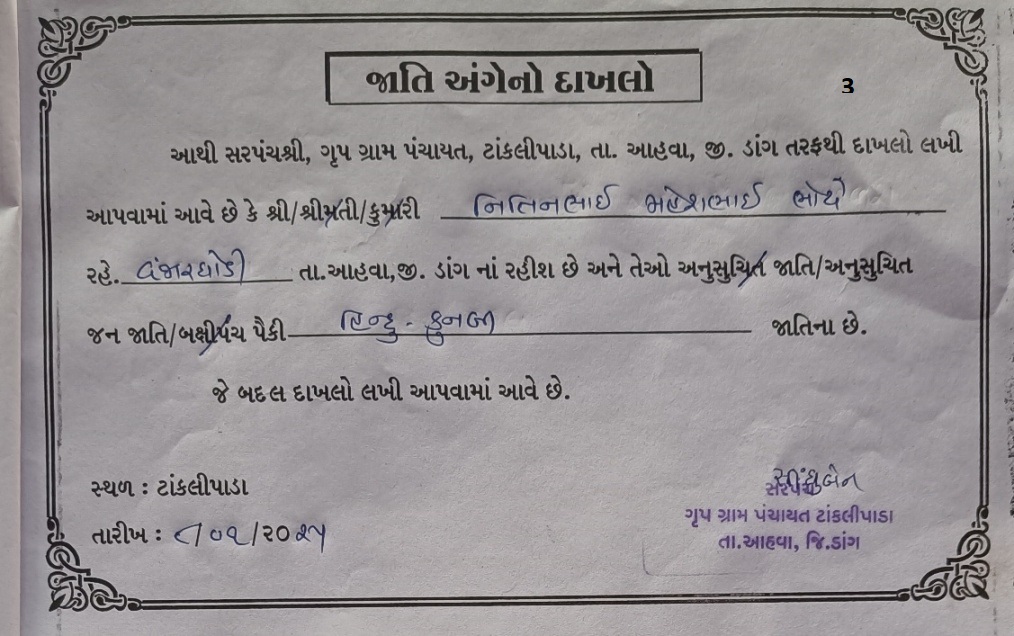 જાતિ અંગેનો દાખલો
3
આથી સરપંચશ્રી, ગૃપ ગ્રામ પંચાયત, ટાંકલીપાડા, તા. આહવા, જી. ડાંગ તરફથી દાખલો લખી
આપવામાં આવે છે કે શ્રી/શ્રીમતી/કુમારી નિતિનભાઈ મહેશભાઈ ભોયે
રહે. વંજારઘોડી તા.આહવા,જી. ડાંગ નાં રહીશ છે અને તેઓ અનુસુચિત જાતિ/અનુસુચિત
જન જાતિ/બક્ષીપંચ પૈકી હિન્દુ - કુનબી જાતિના છે.
જે બદલ દાખલો લખી આપવામાં આવે છે.
સ્થળ : ટાંકલીપાડા
તારીખ : /૦૧/૨૦૨૫
સીંધુબેન
સરપંચ
ગૃપ ગ્રામ પંચાયત ટાંકલીપાડા
તા.આહવા, જિ.ડાંગ